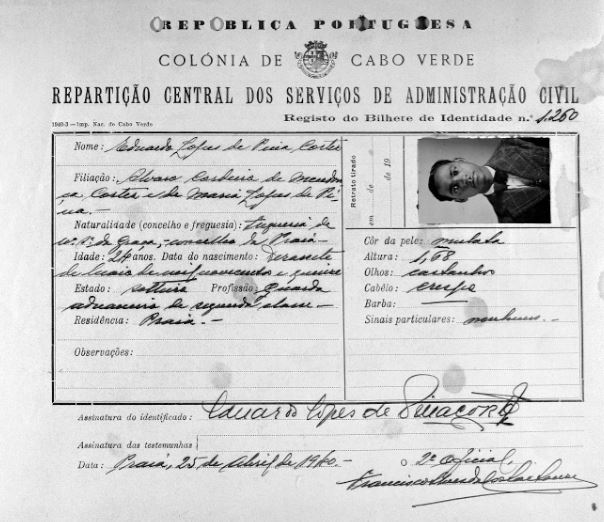 REPÚBLICA PORTUGUESA
COLÓNIA DE CABO VERDE
REPARTIÇÃO CENTRAL DOS SERVIÇOS DE ADMINISTRAÇÃO CIVIL
1940-3 — Imp. Nac. de Cabo Verde
Registo do Bilhete de Identidade n.º 1.260
Nome: Eduardo Lopes de Pina Cortez
Filiação: Alvaro Cordeiro de Mendon
ça Cortez e de Maria Lopes de Pi
na.—
Naturalidade (concelho e freguesia): freguesia de
n.ª s.ª da graça, concelho da Praia—
Idade: 24 anos. Data do nascimento: Dezassete
de maio de mil novecentos e quinze
Estado: solteiro Profissão: Guarda
aduaneiro de segunda classe—
Residência: Praia.—
Observações:
Retrato tirado
em de de 19
Côr da pele: mulata
Altura: 1,68
Olhos: castanhos
Cabêlo: crespo
Barba: —
Sinais particulares: nenhuns.—
Assinatura do identificado: Eduardo Lopes de Pina Cortez
Assinatura das testemunhas
Data: Praia, 25 de Abril de 1940.—
O 2º Oficial,
Francisco